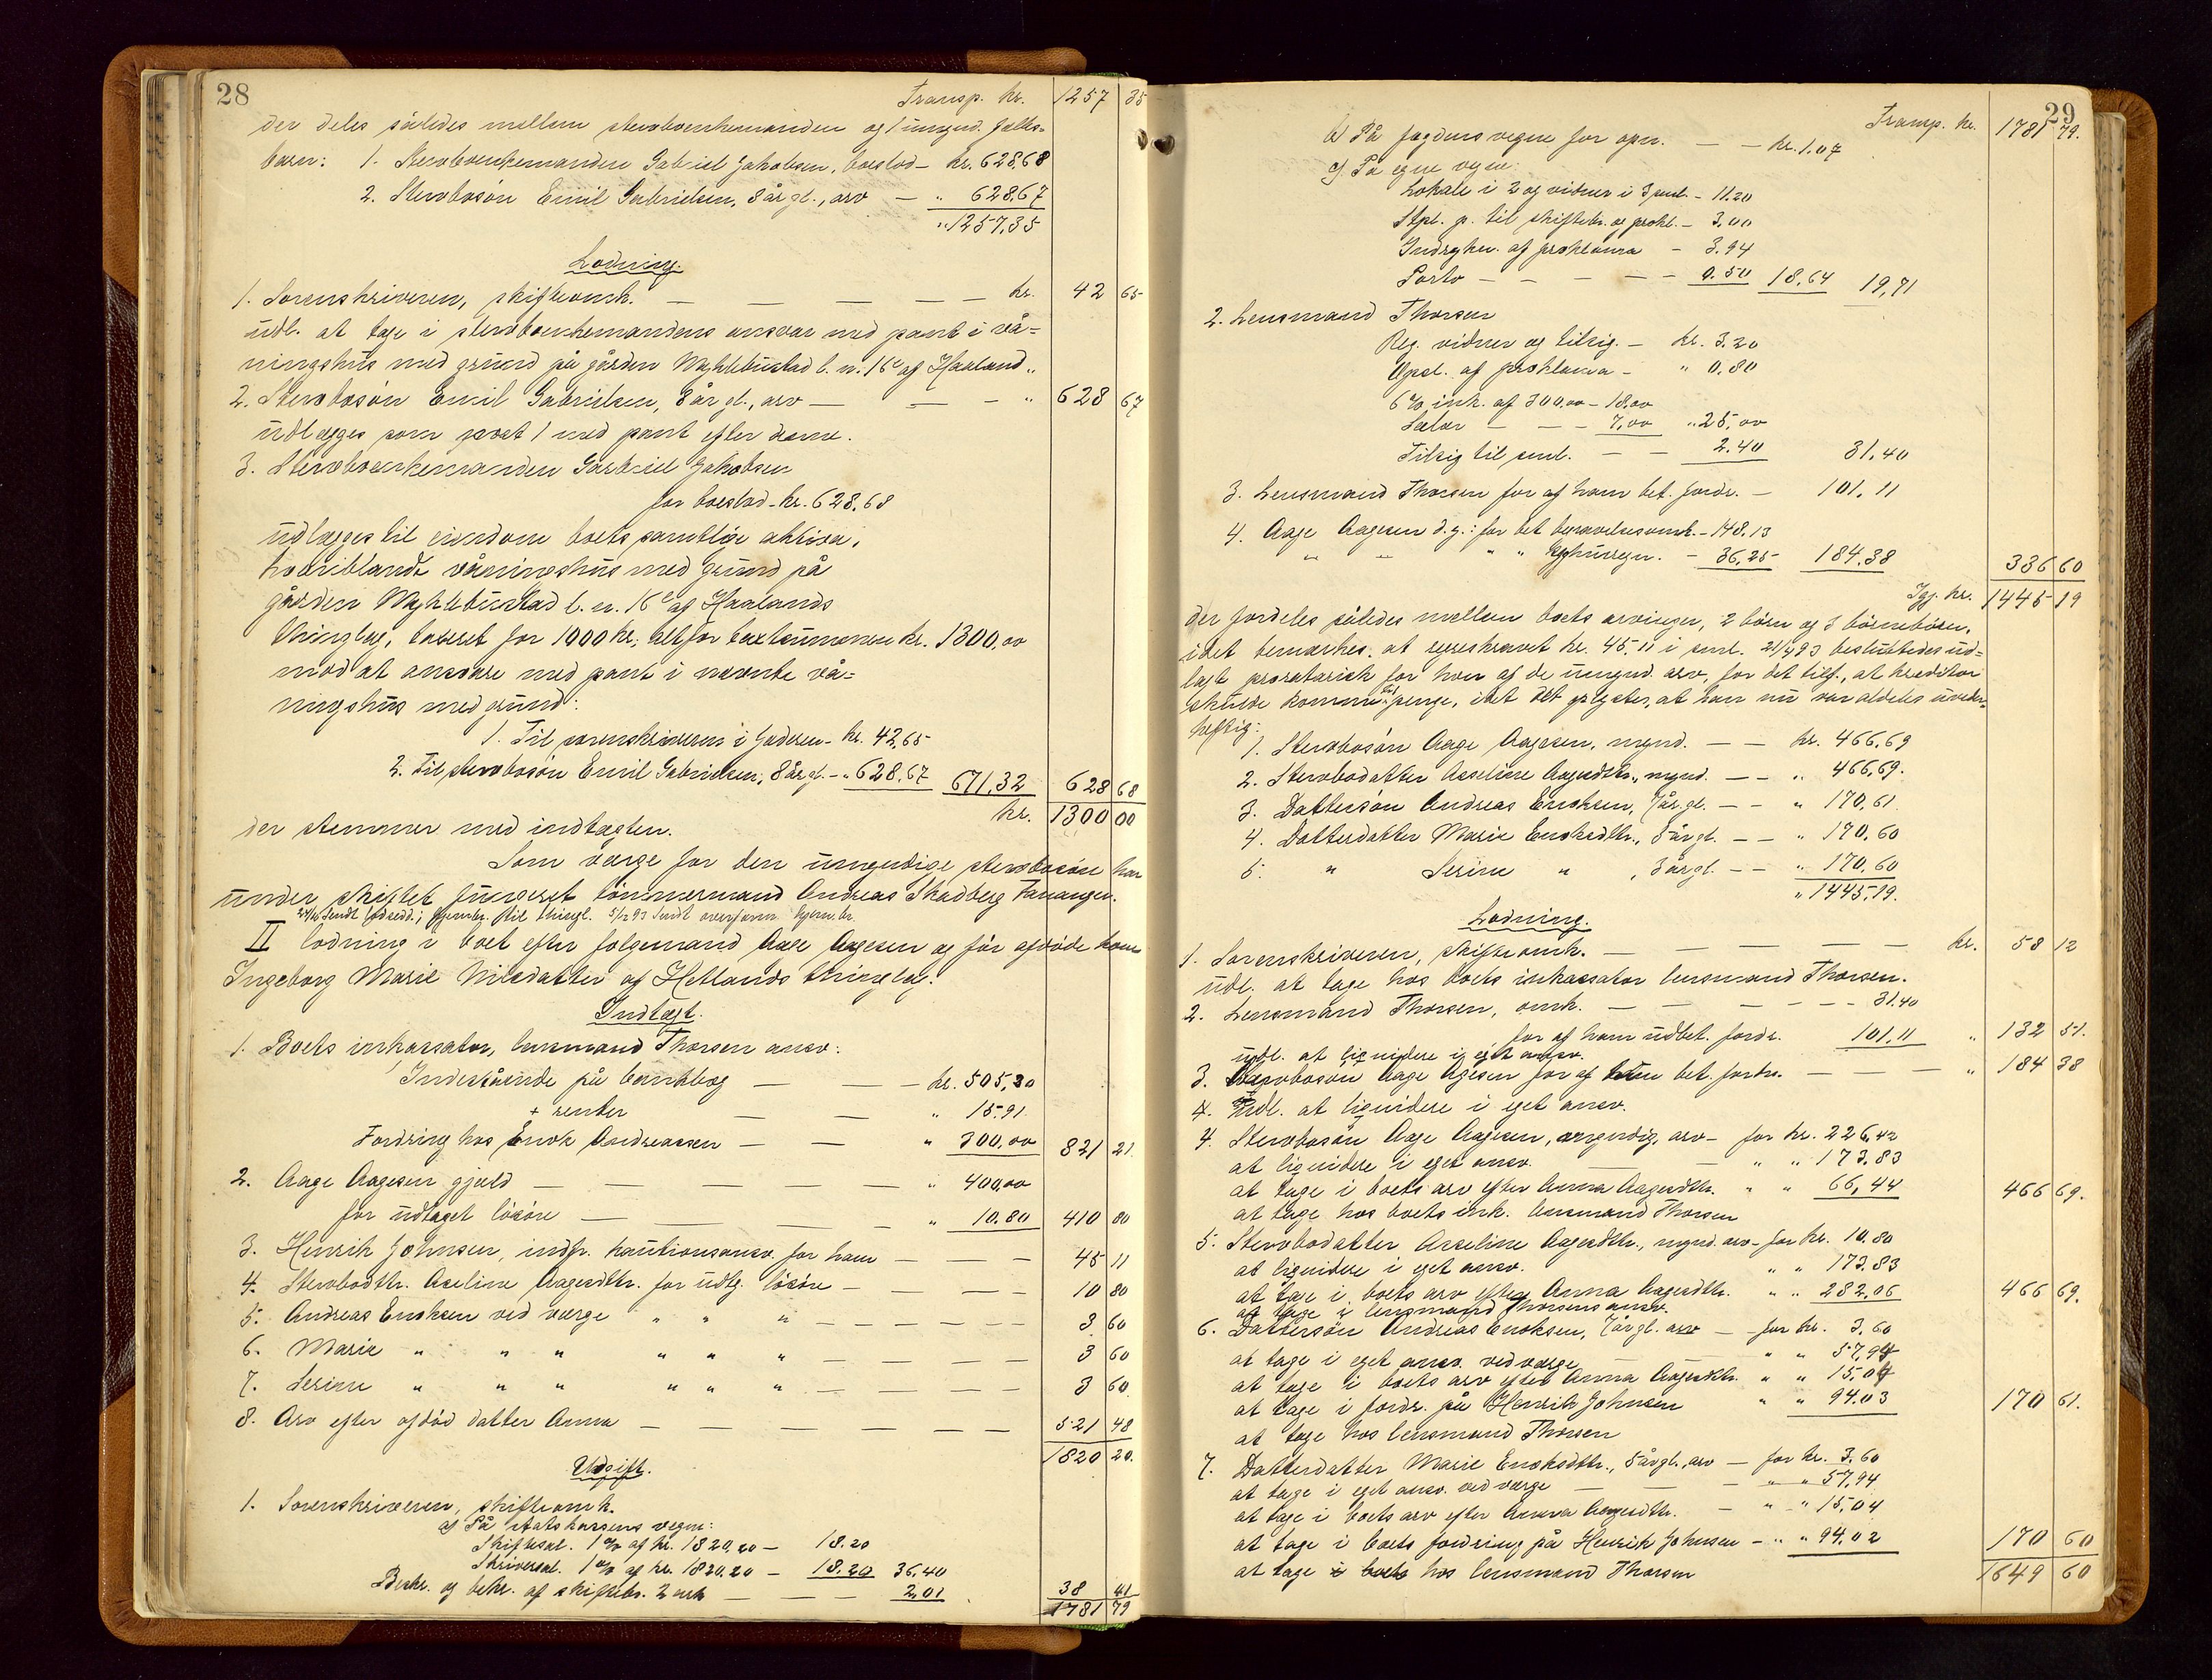 28
Transp. kr. 1257 35
der deles således mellem stervboenkemanden og 1 umynd. fælles-
barn: 1. Stervboenkemanden Gabriel Jakobsen, boeslod - kr. 628,68
2. Stervbosön Emil Gabrielsen, 8 år gl., arv — " 628,67
" 1257,35
Lodning.
1. Sorenskriveren, skifteomk. — — — — — kr. 42 65
udl. at tage i stervboenkemandens ansvar med pant i vå-
ningshus med grund på gården Myklebustad l. n. 16c af Haaland "
2. Stervbosön Emil Gabrielsen, 8 år gl., arv — — - " 628 67
udlægges som post 1 med pant efter denne.
3. Stervboenkemanden Gabriel Jakobsen
for boeslod - kr. 628,68
udlægges til eiendom boets samtlige aktiva,
hvoriblandt våningshus med grund på
gården Myklebustad l. n. 16c af Haalands
thinglag, taxeret for 1000 kr., alt for taxtsummen kr. 1300,00
mod at ansvare med pant i nævnte vå-
ningshus med grund:
1. Til sorenskriveren i Jæderen - kr. 42,65
2. Til stervbosön Emil Gabrielsen, 8 år gl. - " 628,67 671,32 628 68
kr. 1300 00
der stemmer med indtægten.
Som værge for den umyndige stervbosön har
under skiftet fungeret tömmermand Andreas Skadberg Tananger.
II lodning i boet efter folgemand Aage Aagesen og för afdöde kone
Ingeborg Marie Nilsdatter af Hetlands thinglag.
Indtægt.
1. Boets inkassator, lensmand Thorsen ansv:
Indestående på bankbog — — - kr. 505,30
+ renter — — " 15,91
Fordring hos Enok Andreassen — — " 300,00 821 21
2. Aage Aagesen gjæld — — — — — " 400,00
for udtaget lösöre — — — — " 10.80 410 80
3. Henrik Johnsen, indfr. kautionsansv. for ham — — — 45 11
4. Stervbodtr. Aseline Aagesdtr. for udtg. lösöre — — — — 10 80
5. Andreas Enoksen ved værge " " " — — — — — 3 60
6. Marie " " " " " " — — — — 3 60
7. Serine " " " " " " — — — — 3 60
8. Arv efter afdöd datter Anna — — — — — — 521 48
1820 20.
Udgift.
1. Sorenskriveren, skifteomk.
a) På statskassens vegne:
Skiftesal. 1 % af kr. 1820,20 — 18.20
Skriversal. 1 % af kr. 1820.20 — 18.20 36,40
Beskr. og bekr. af skiftebr. 2 ark — — — 2,01 38 41
1781 79
29
Transp. kr. 1781 79.
b) På fogdens vegne for opn. — — kr. 1.07
c) På egne vegne:
Lokale i 2 og vidner i 3 saml. - 11.20
Stpl. p. til skiftebr. og prokl. - 3,00
Indrykn. af proklama - 3.94
Porto — — — — — 0.50 18,64 19,71
2. Lensmand Thorsen
Reg. vidner og tilsig. — kr. 3.20
Opsl. af proklama — " 0.80
6 % ink. af 300,00 - 18,00
Salær — — — 7,00 " 25,00
Tilsig til saml. — — 2.40 31.40
3. Lensmand Thorsen for af ham bet. fordr. — 101.11
4. Aage Aagesen d.y.: for bet begravelsesomk. - 148.13
" " " " regn. — 36,25 184.38 336 60
Igj. kr. 1445 19
der fordeles således mellem boets arvinger, 2 börn og 3 börnebörn,
idet bemærkes, at regreskravet kr. 45,11 i saml. 21/4 93 besluttedes ud-
lagt proratarisk for hver af de umynd. arv. for det tilf., at kreditor
skulde komme til penge, idet det oplystes, at han nu var aldeles uveder-
heftig:
1. Stervbosön Aage Aagesen, mynd. — — kr. 466,69
2. Stervbodatter Asseline Aagesdtr., mynd. — — " 466,69.
3. Dattersön Andreas Enoksen, 7 år gl. — — " 170,61
4. Datterdatter Marie Enoksdtr., 5 år gl. — — " 170,60
5. " Serine " , 3 år gl. — — " 170,60
" 1445,19.
Lodning.
1. Sorenskriveren, skifteomk. — — — — — kr. 58 12
udl. at tage hos boets inkassator lensmand Thorsen.
2. Lensmand Thorsen, omk. — — — — — 31.40
for af ham udbet. fordr. 101,11 " 132 51.
udl. at liquidere i eget ansv.
3. Stervbosön Aage Agesen for af ham bet. fordr. — — — " 184 38
udl. at liquidere i eget ansv.
4. Stervbosön Aage Aagesen, myndig, arv — for kr. 226,42
at liquidere i eget ansv. — — " " 173.83
at tage i boets arv efter Anna Aagesdtr. " " 66,44 466 69.
at tage hos boets ink. lensmand Thorsen
5. Stervbodatter Asseline Aagesdtr., mynd. arv - for kr. 10.80
at liquidere i eget ansv. " " 173.83
at tage i boets arv efter Anna Aagesdtr. " " 282.06 466 69.
at tage i lensmand Thorsens ansv.
6. Dattersön Andreas Enoksen, 7 år gl. arv — for kr. 3,60
at tage i eget ansv. ved værge — " " 57,94
at tage i boets arv efter Anna Aagesdtr. " " 15,04
at tage i fordr. på Henrik Johnsen " " 94.03 170 61.
at tage hos lensmand Thorsen
7. Datterdatter Marie Enoksdtr., 5 år gl., arv — for kr. 3,60
at tage i eget ansv. ved værge — — " " 57,94
at tage i boets arv efter Anna Aagesdtr. — " " 15,04
at tage i boets fordring på Henrik Johnsen - " " 94,02 170 60
at tage hos lensmand Thorsen 1649 60